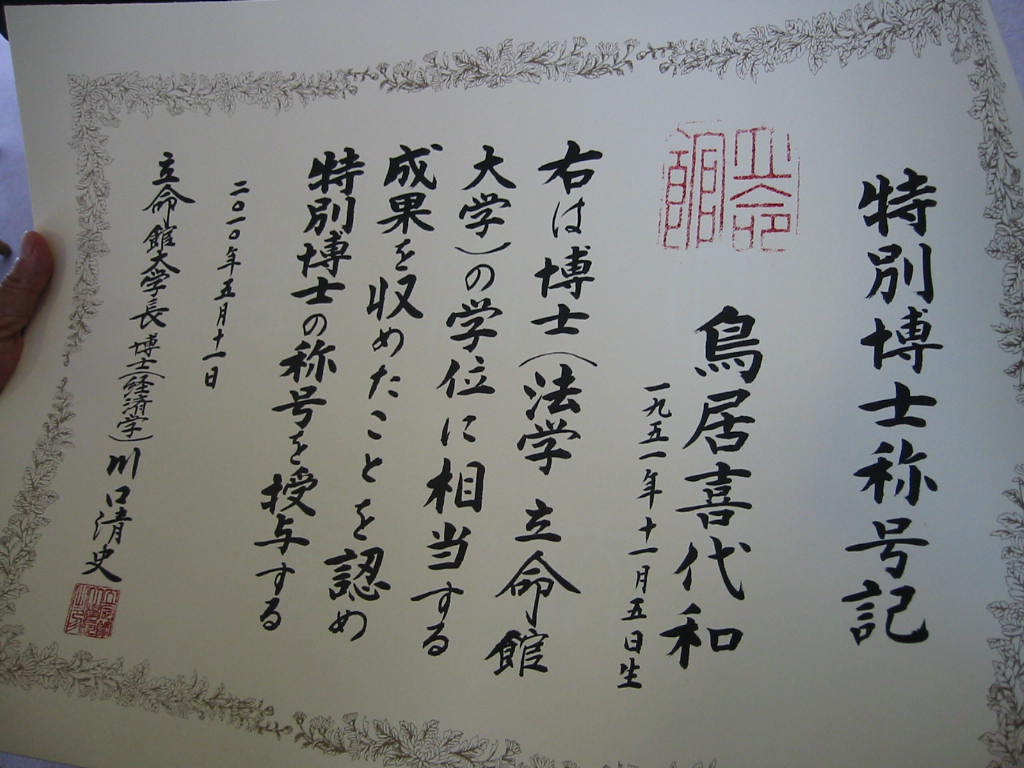 特別博士称号記
立命
館
鳥居喜代和
一九五一年十一月五日生
右は博士（法学 立命館
大学）の学位に相当する
成果を収めたことを認め
特別博士の称号を授与する
二〇一〇年五月十一日
立命館大学長 博士（経済学） 川口清史